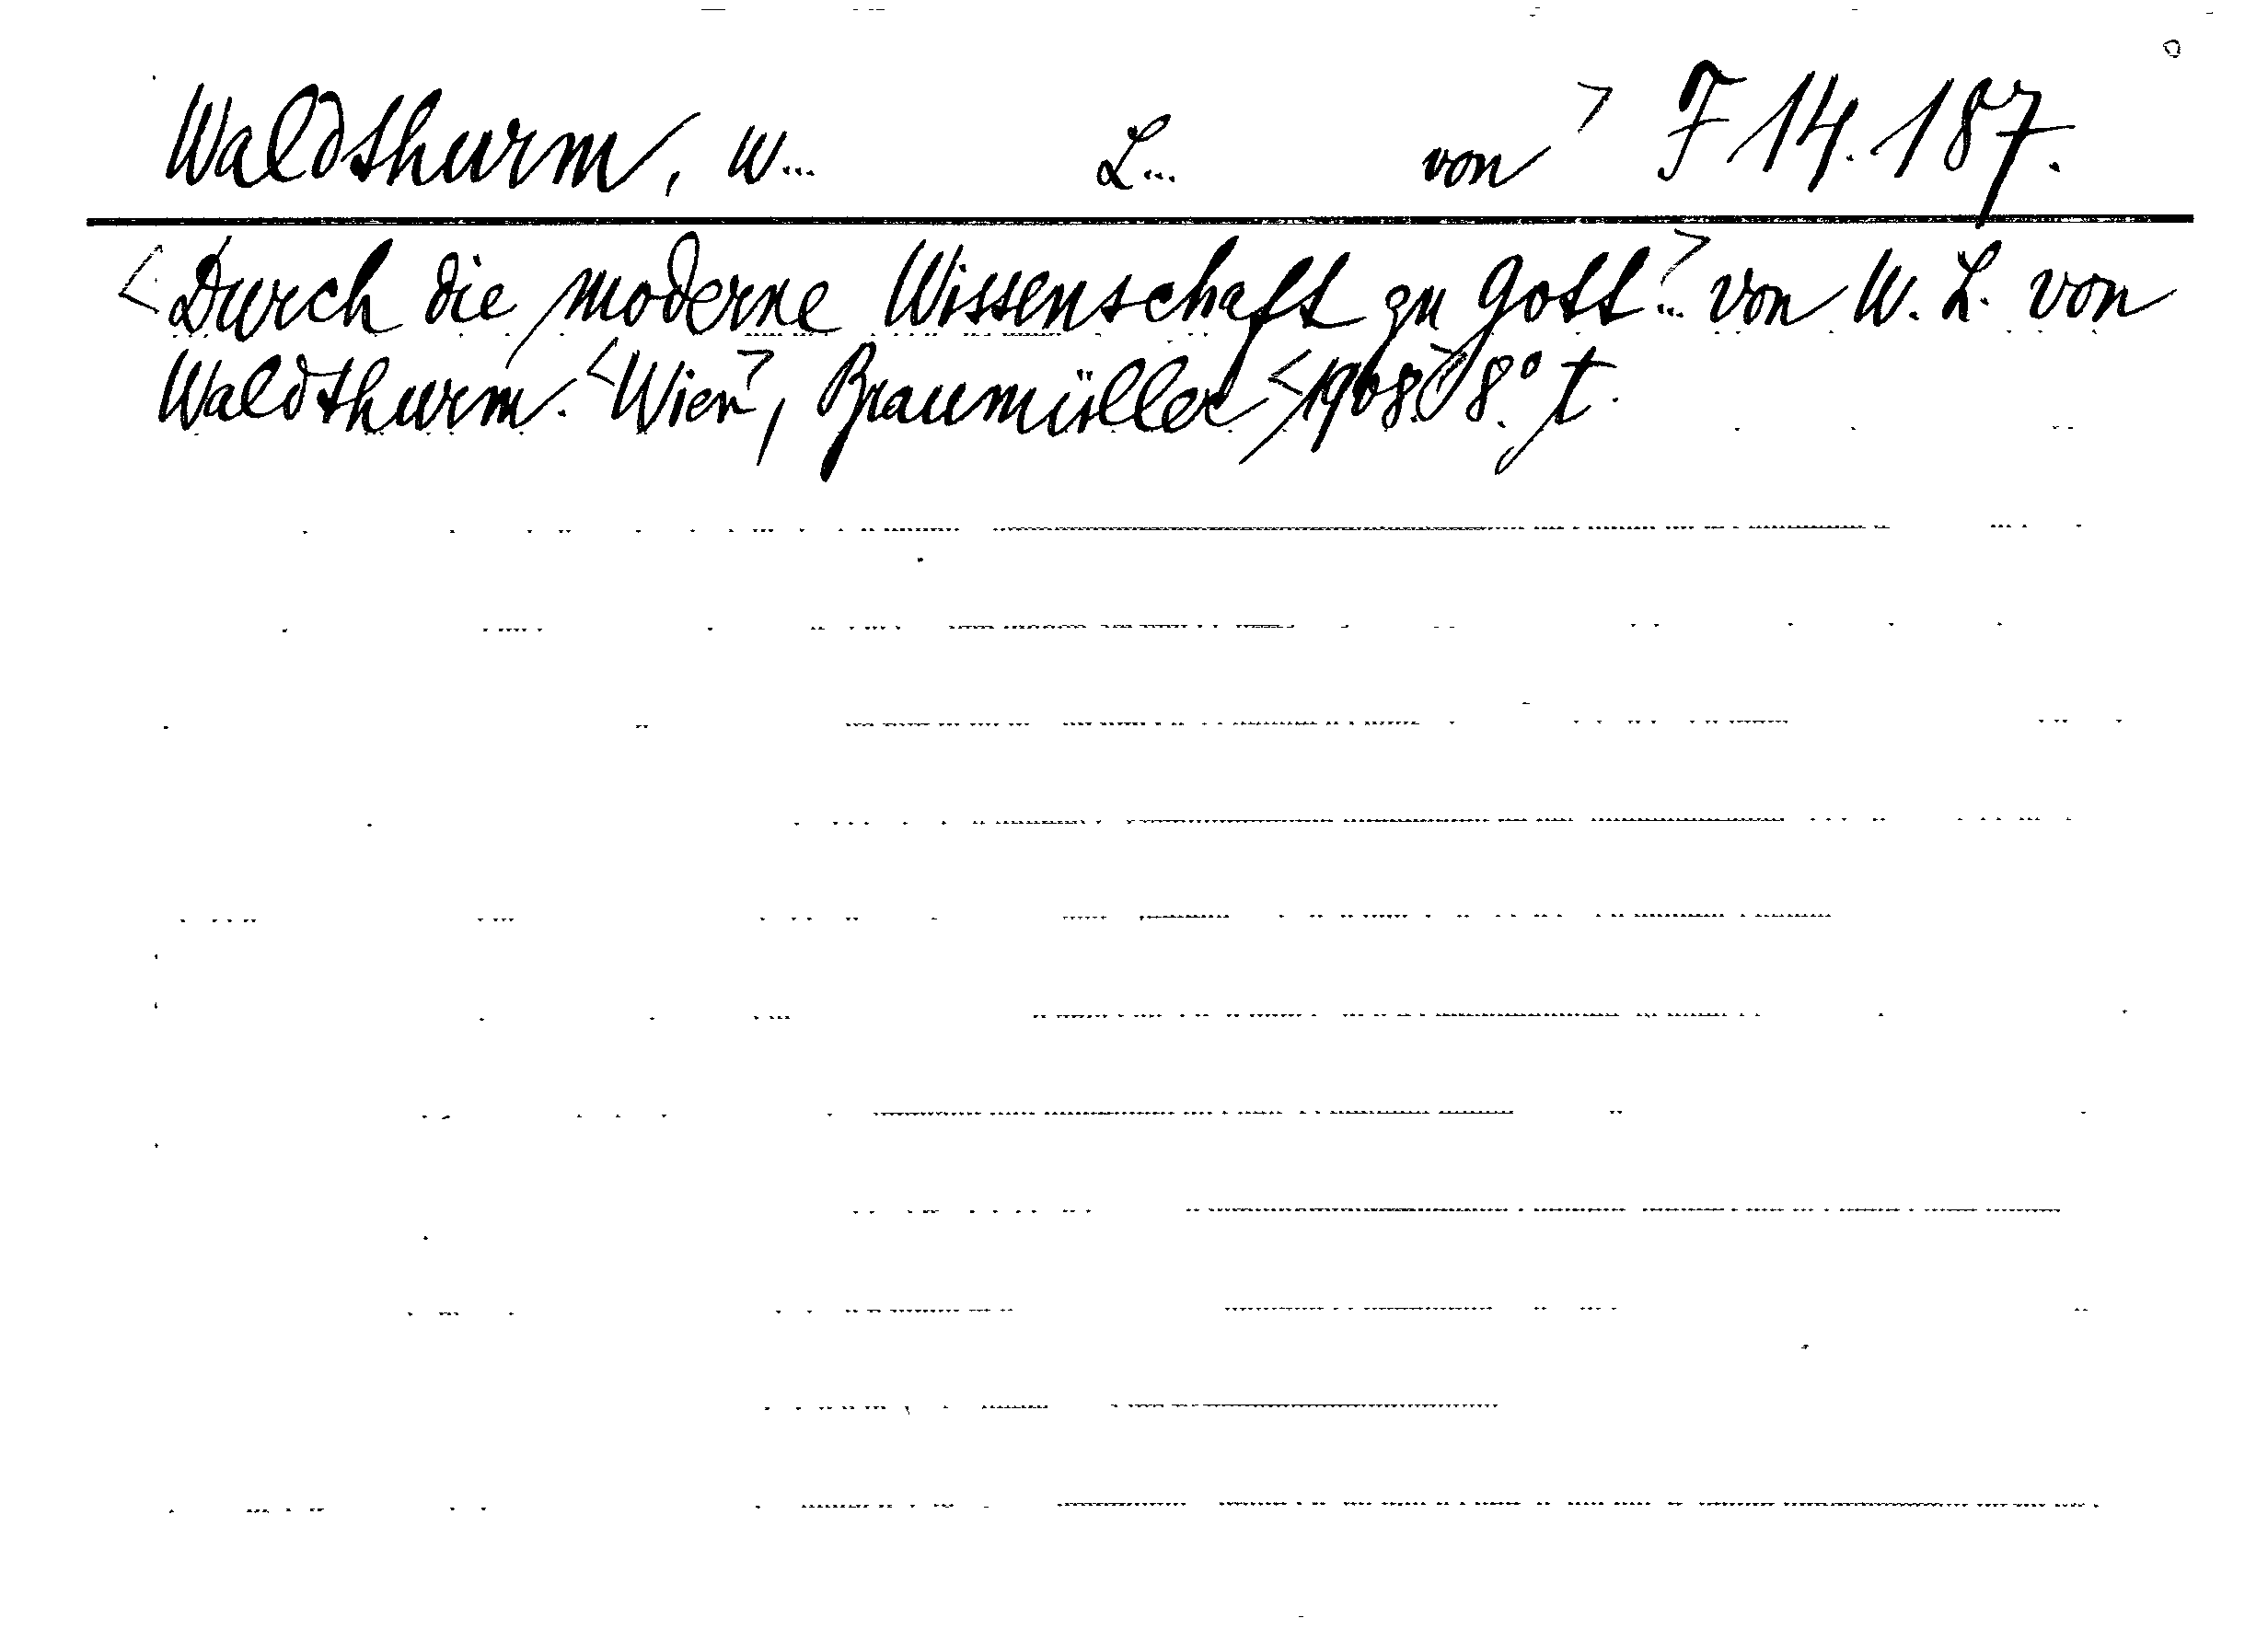 Waldthurm, W... L... von> F 14.187.
<Durch die moderne Wissenschaft zu Gott?> von W. L. von
Waldthurm. <Wien>, Braumüller <1908> 8.° t.